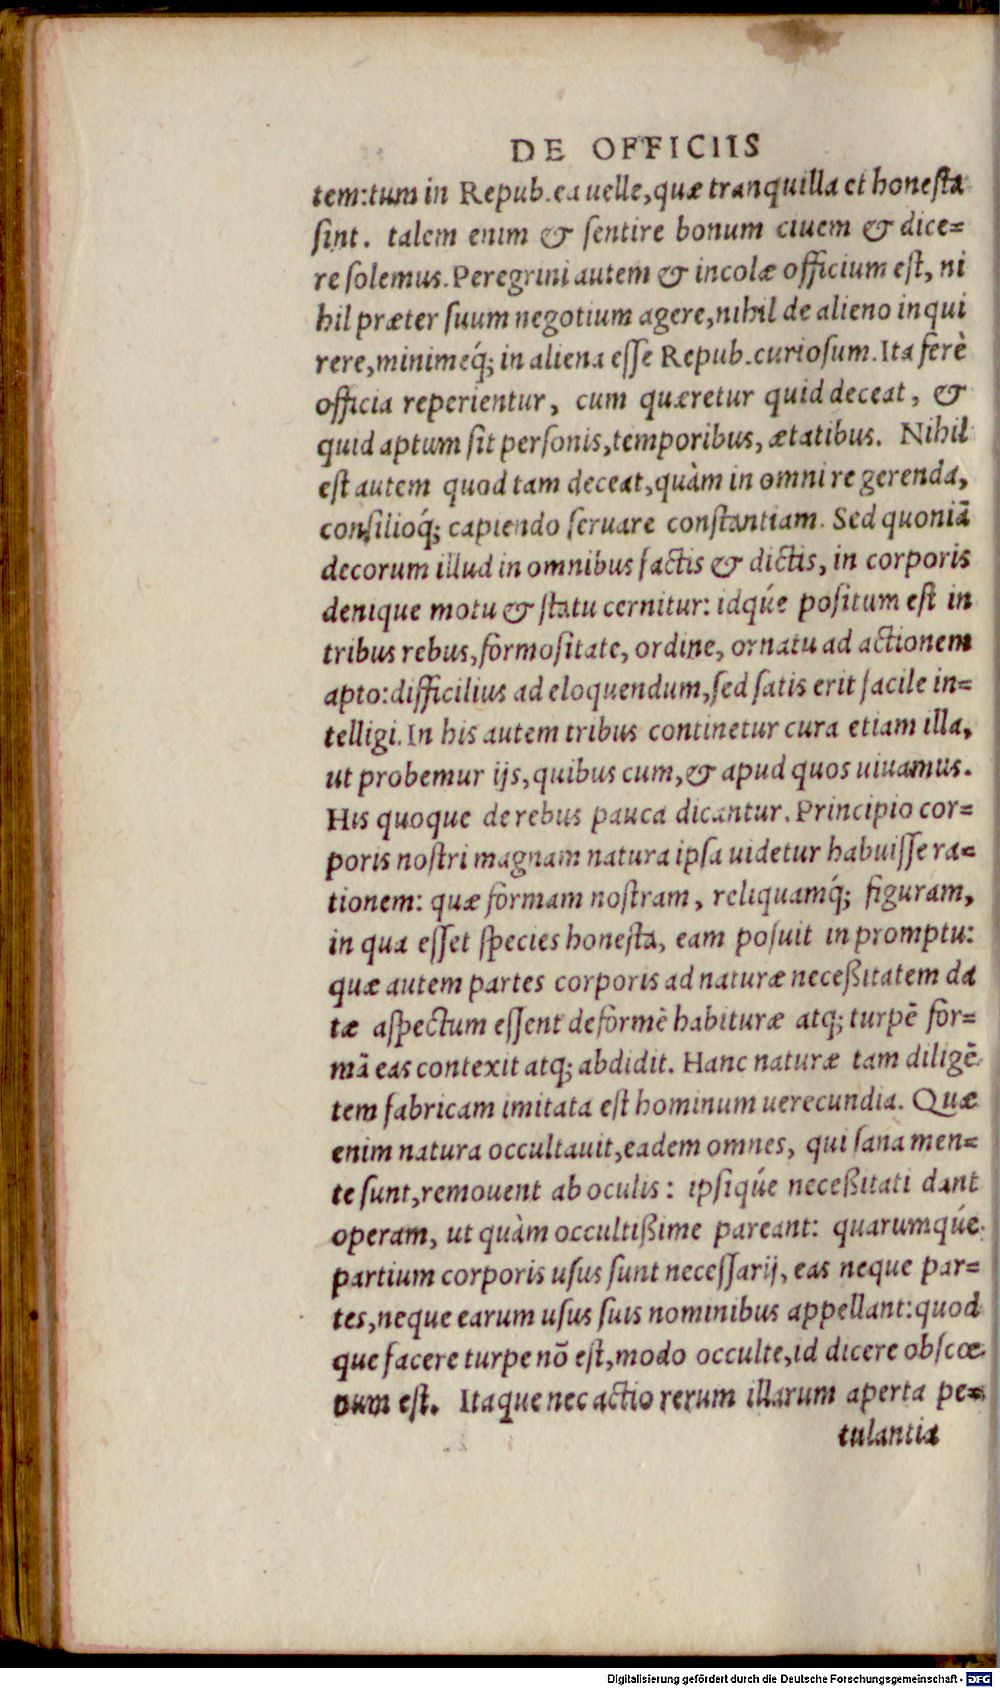 DE OFFICIIS
tem:tum in Repub.ea uelle,quæ tranquilla et honeſta
ſint. talem enim & ſentire bonum ciuem & dice=
re ſolemus.Peregrini autem & incolæ officium eſt, ni
hil præter ſuum negotium agere,nihil de alieno inqui
rere,minimeq́; in aliena eſſe Repub.curioſum.Ita ferè
officia reperientur, cum quæretur quid deceat, &
quid aptum ſit perſonis,temporibus, ætatibus. Nihil
eſt autem quod tam deceat,quàm in omni re gerenda,
conſilioq́; capiendo ſeruare conſtantiam. Sed quoniā
decorum illud in omnibus factis & dictis, in corporis
denique motu & ſtatu cernitur: idq́ue poſitum eſt in
tribus rebus,formoſitate, ordine, ornatu ad actionem
apto:difficilius ad eloquendum,ſed ſatis erit facile in=
telligi.In his autem tribus continetur cura etiam illa,
ut probemur ijs,quibus cum,& apud quos uiuamus.
His quoque de rebus pauca dicantur.Principio cor=
poris noſtri magnam natura ipſa uidetur habuiſſe ra=
tionem: quæ formam noſtram, reliquamq́; figuram,
in qua eſſet ſpecies honeſta, eam poſuit in promptu:
quæ autem partes corporis ad naturæ neceßitatem da
tæ aſpectum eſſent deformē habituræ atq; turpē for=
mā eas contexit atq; abdidit. Hanc naturæ tam diligē
tem fabricam imitata eſt hominum uerecundia. Quæ
enim natura occultauit,eadem omnes, qui ſana men=
te ſunt,remouent ab oculis: ipſiq́ue neceßitati dant
operam, ut quàm occultißime pareant: quarumq́ue
partium corporis uſus ſunt neceſſarij, eas neque par=
tes,neque earum uſus ſuis nominibus appellant:quod
que facere turpe nō eſt,modo occulte,id dicere obſcœ
num eſt. Itaque nec actio rerum illarum aperta pe=
tulantia
Digitalisierung gefördert durch die Deutsche Forschungsgemeinschaft - DFG